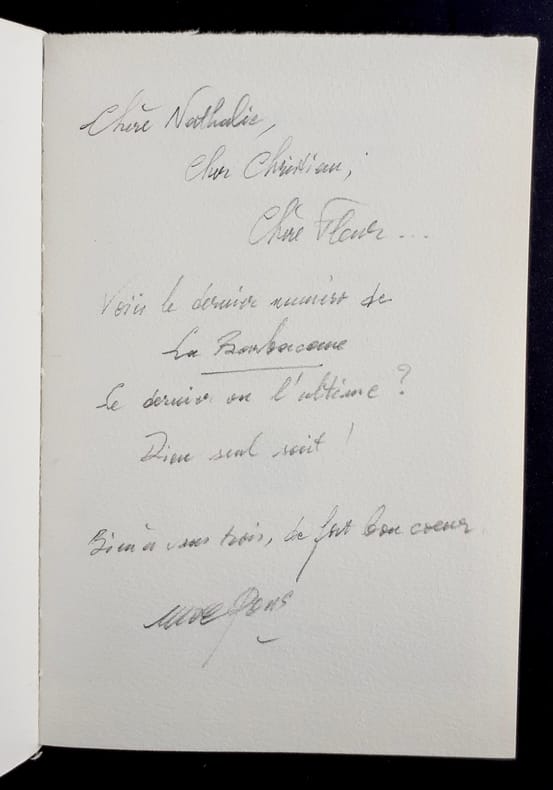 Chère Nathalie,
Cher Christian,
Chère Fleur...
Voici le dernier numéro de
La Barbacane
Le dernier ou l'ultime ?
Dieu seul sait !
Bien à vous trois, de fort bon coeur.
Max Pons